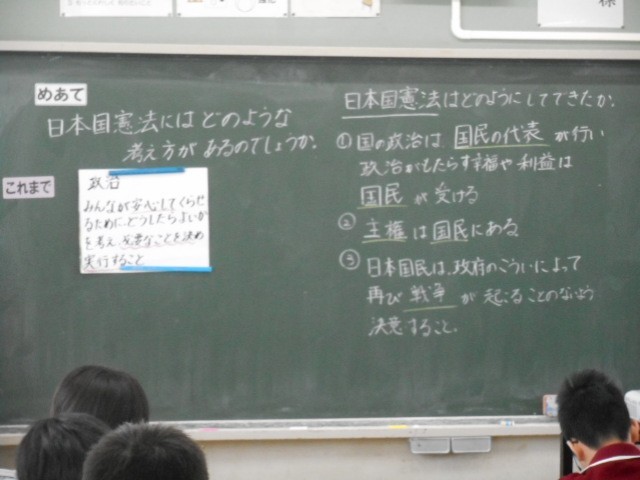 めあて
日本国憲法にはどのような
考え方があるのでしょうか。
これまで
政治
みんなが安心してくらせ
るために、どうしたらよいか
を考え、必要なことを決め
実行すること
日本国憲法はどのようにしてできたか。
①国の政治は、国民の代表が行い
政治がもたらす幸福や利益は
国民が受ける
②主権は国民にある
③日本国民は、政府のこういによって
再び戦争が起こることのないよう
決意すること。
様